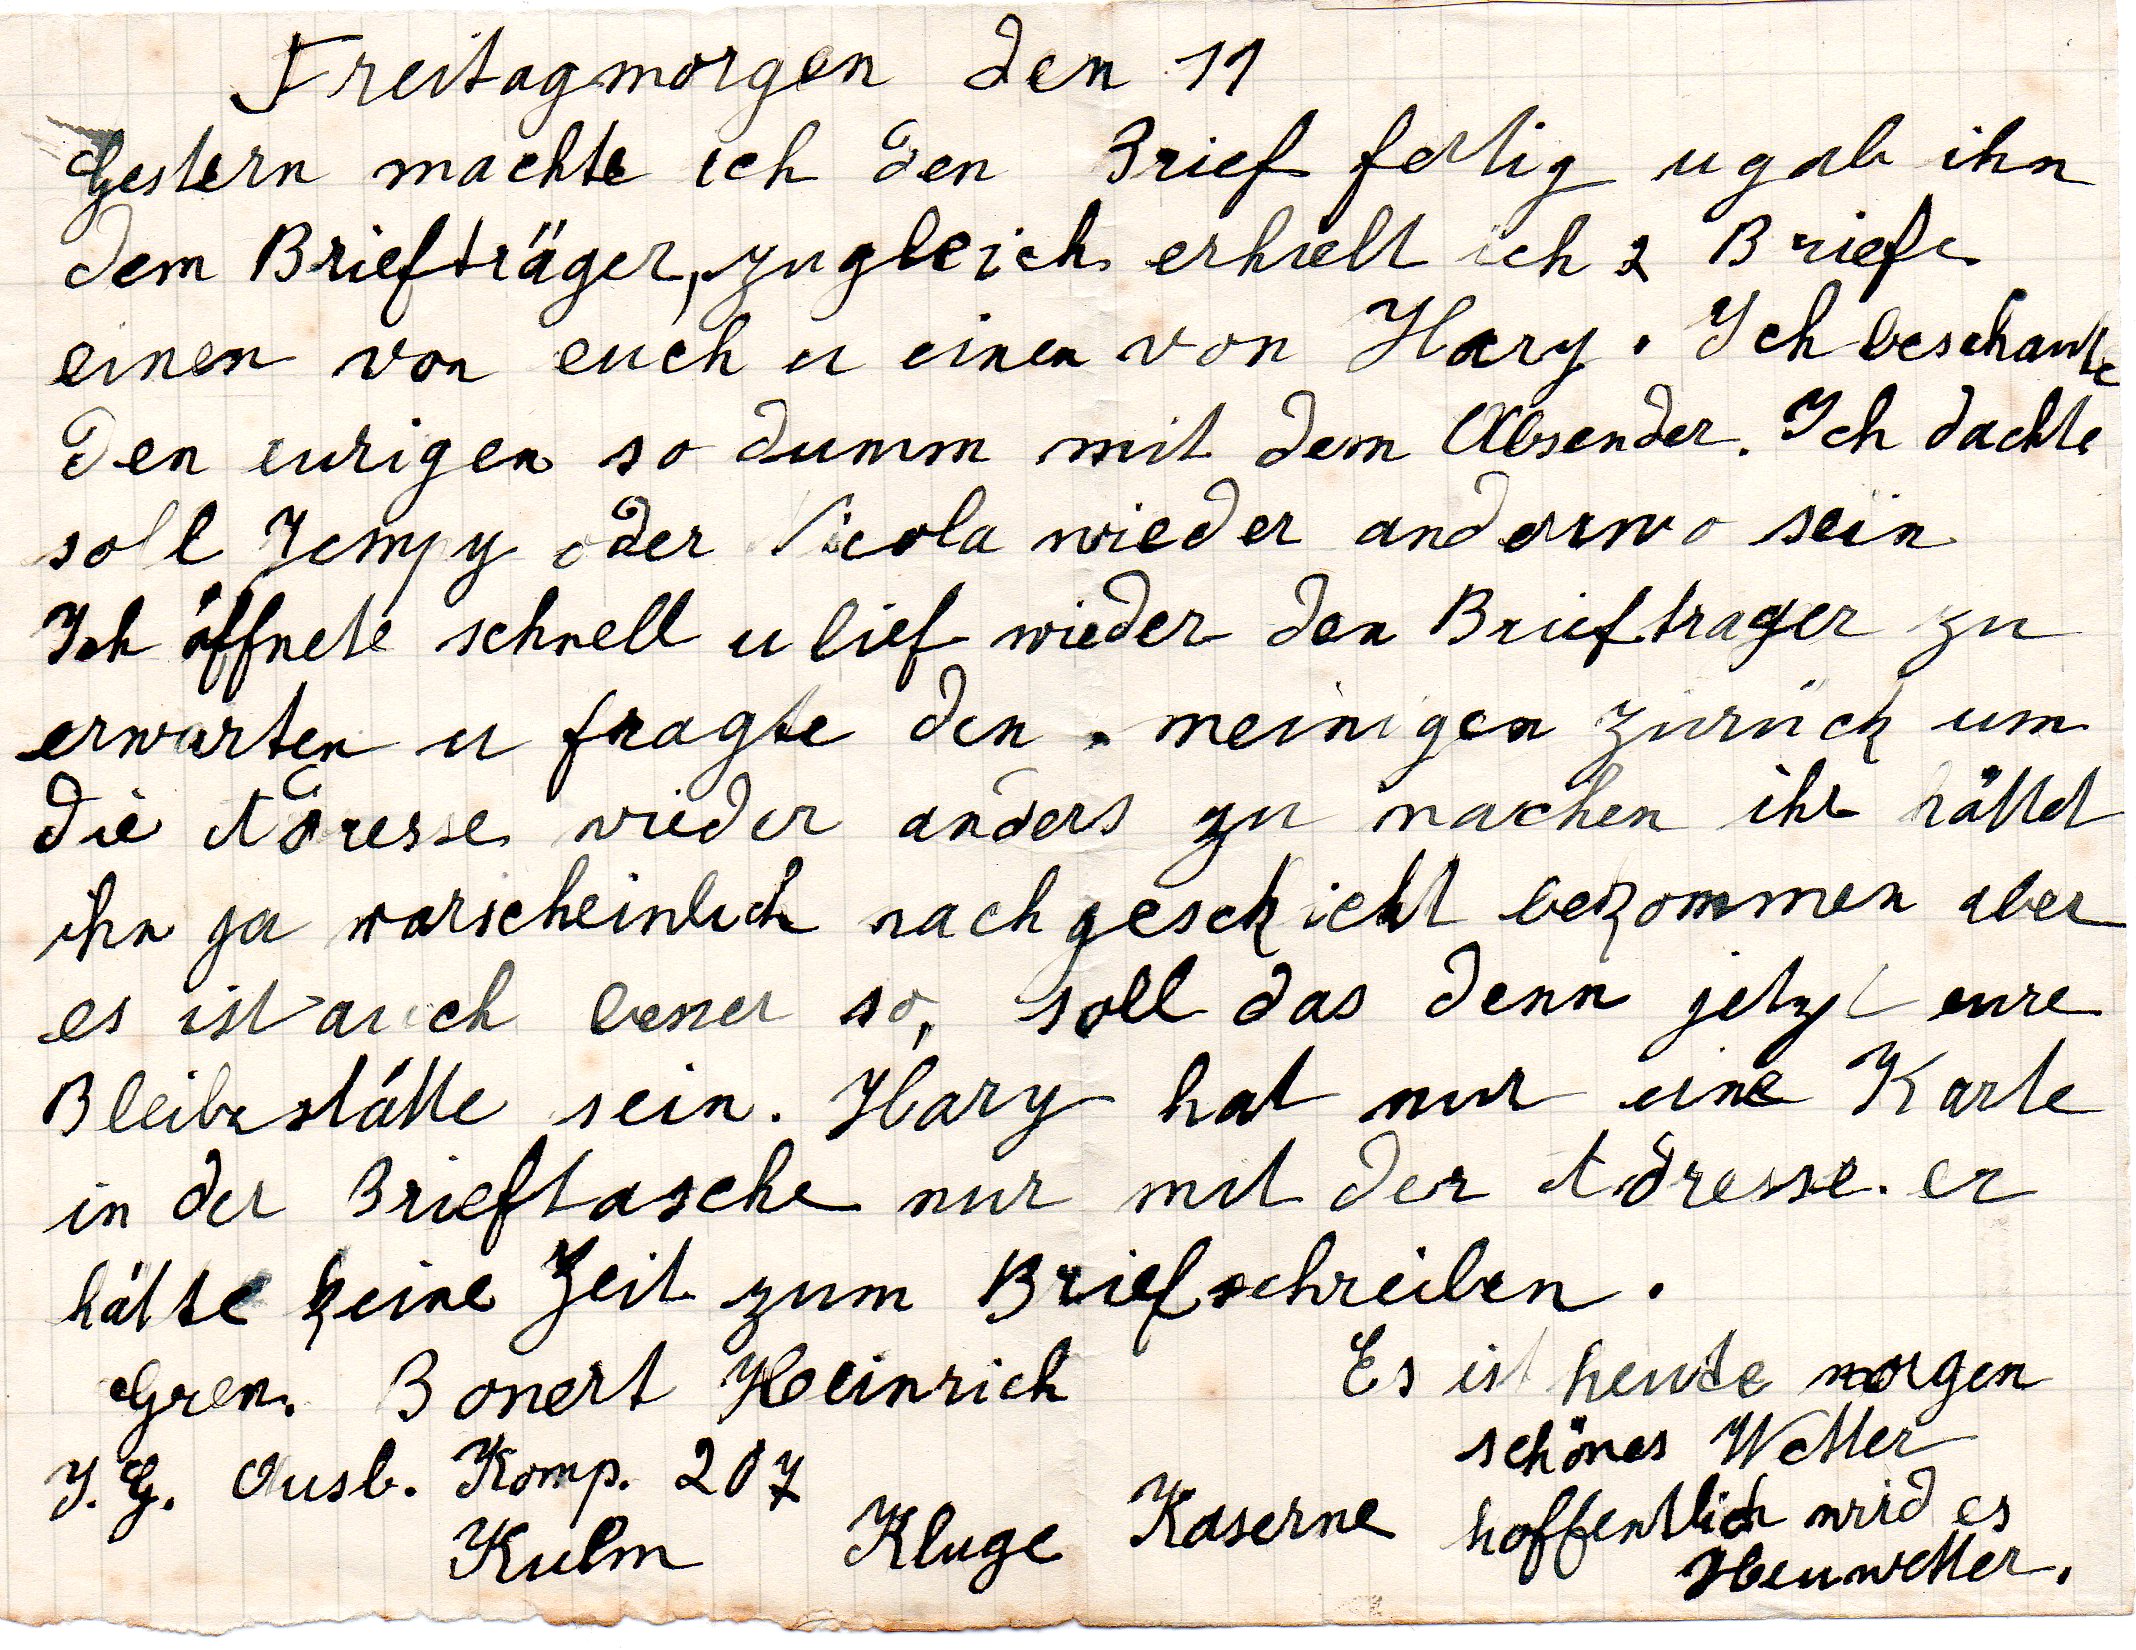 Freitagmorgen den 11
Gestern machte ich den Brief fertig u gab ihn
dem Briefträger, zugleich erhielt ich 2 Briefe
einen von euch u einen von Hary. Ich beschaute
den eurigen so dumm mit dem Absender. Ich dachte
soll Jempy oder Nicola wieder anderwo sein
Ich öffnete schnell u lief wieder den Briefträger zu
erwarten u fragte den meinigen zurück um
die Adresse wieder anders zu machen ihr hättet
ihn ja warscheinlich nachgeschickt bekommen aber
es ist auch besser so, soll das denn jetzt eure
Bleibestätte sein. Hary hat nur eine Karte
in der Brieftasche nur mit der Adresse. er
hätte keine Zeit zum Briefschreiben.
Gren. Bonert Heinrich
J.G. Ausb. Komp. 207
Kulm Kluge Kaserne
Es ist heute morgen
schönes Wetter
hoffentlich wird es
Heuwetter.